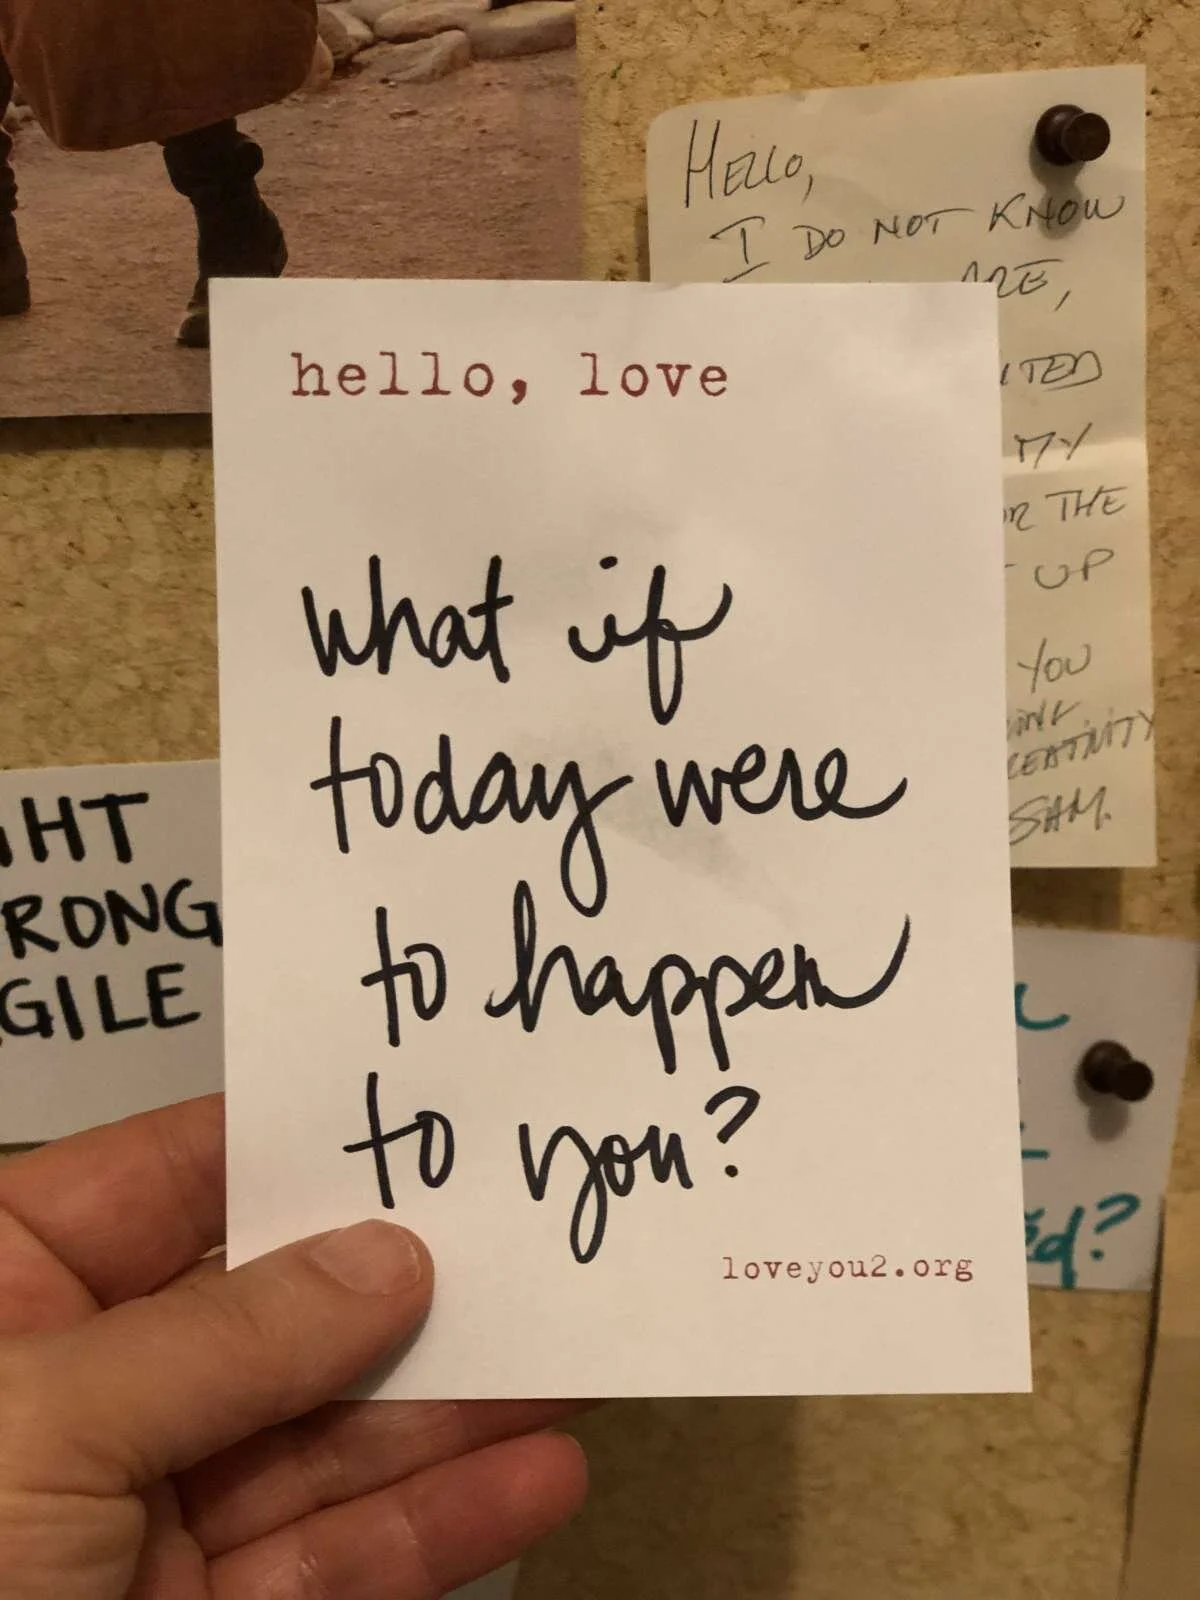 hello, love
what if
today were
to happen
to you?
loveyou2.org
HELLO,
I DO NOT KNOW
ARE,
MY
THE
UP
YOU
SAM.
HT
RONG
GILE
?